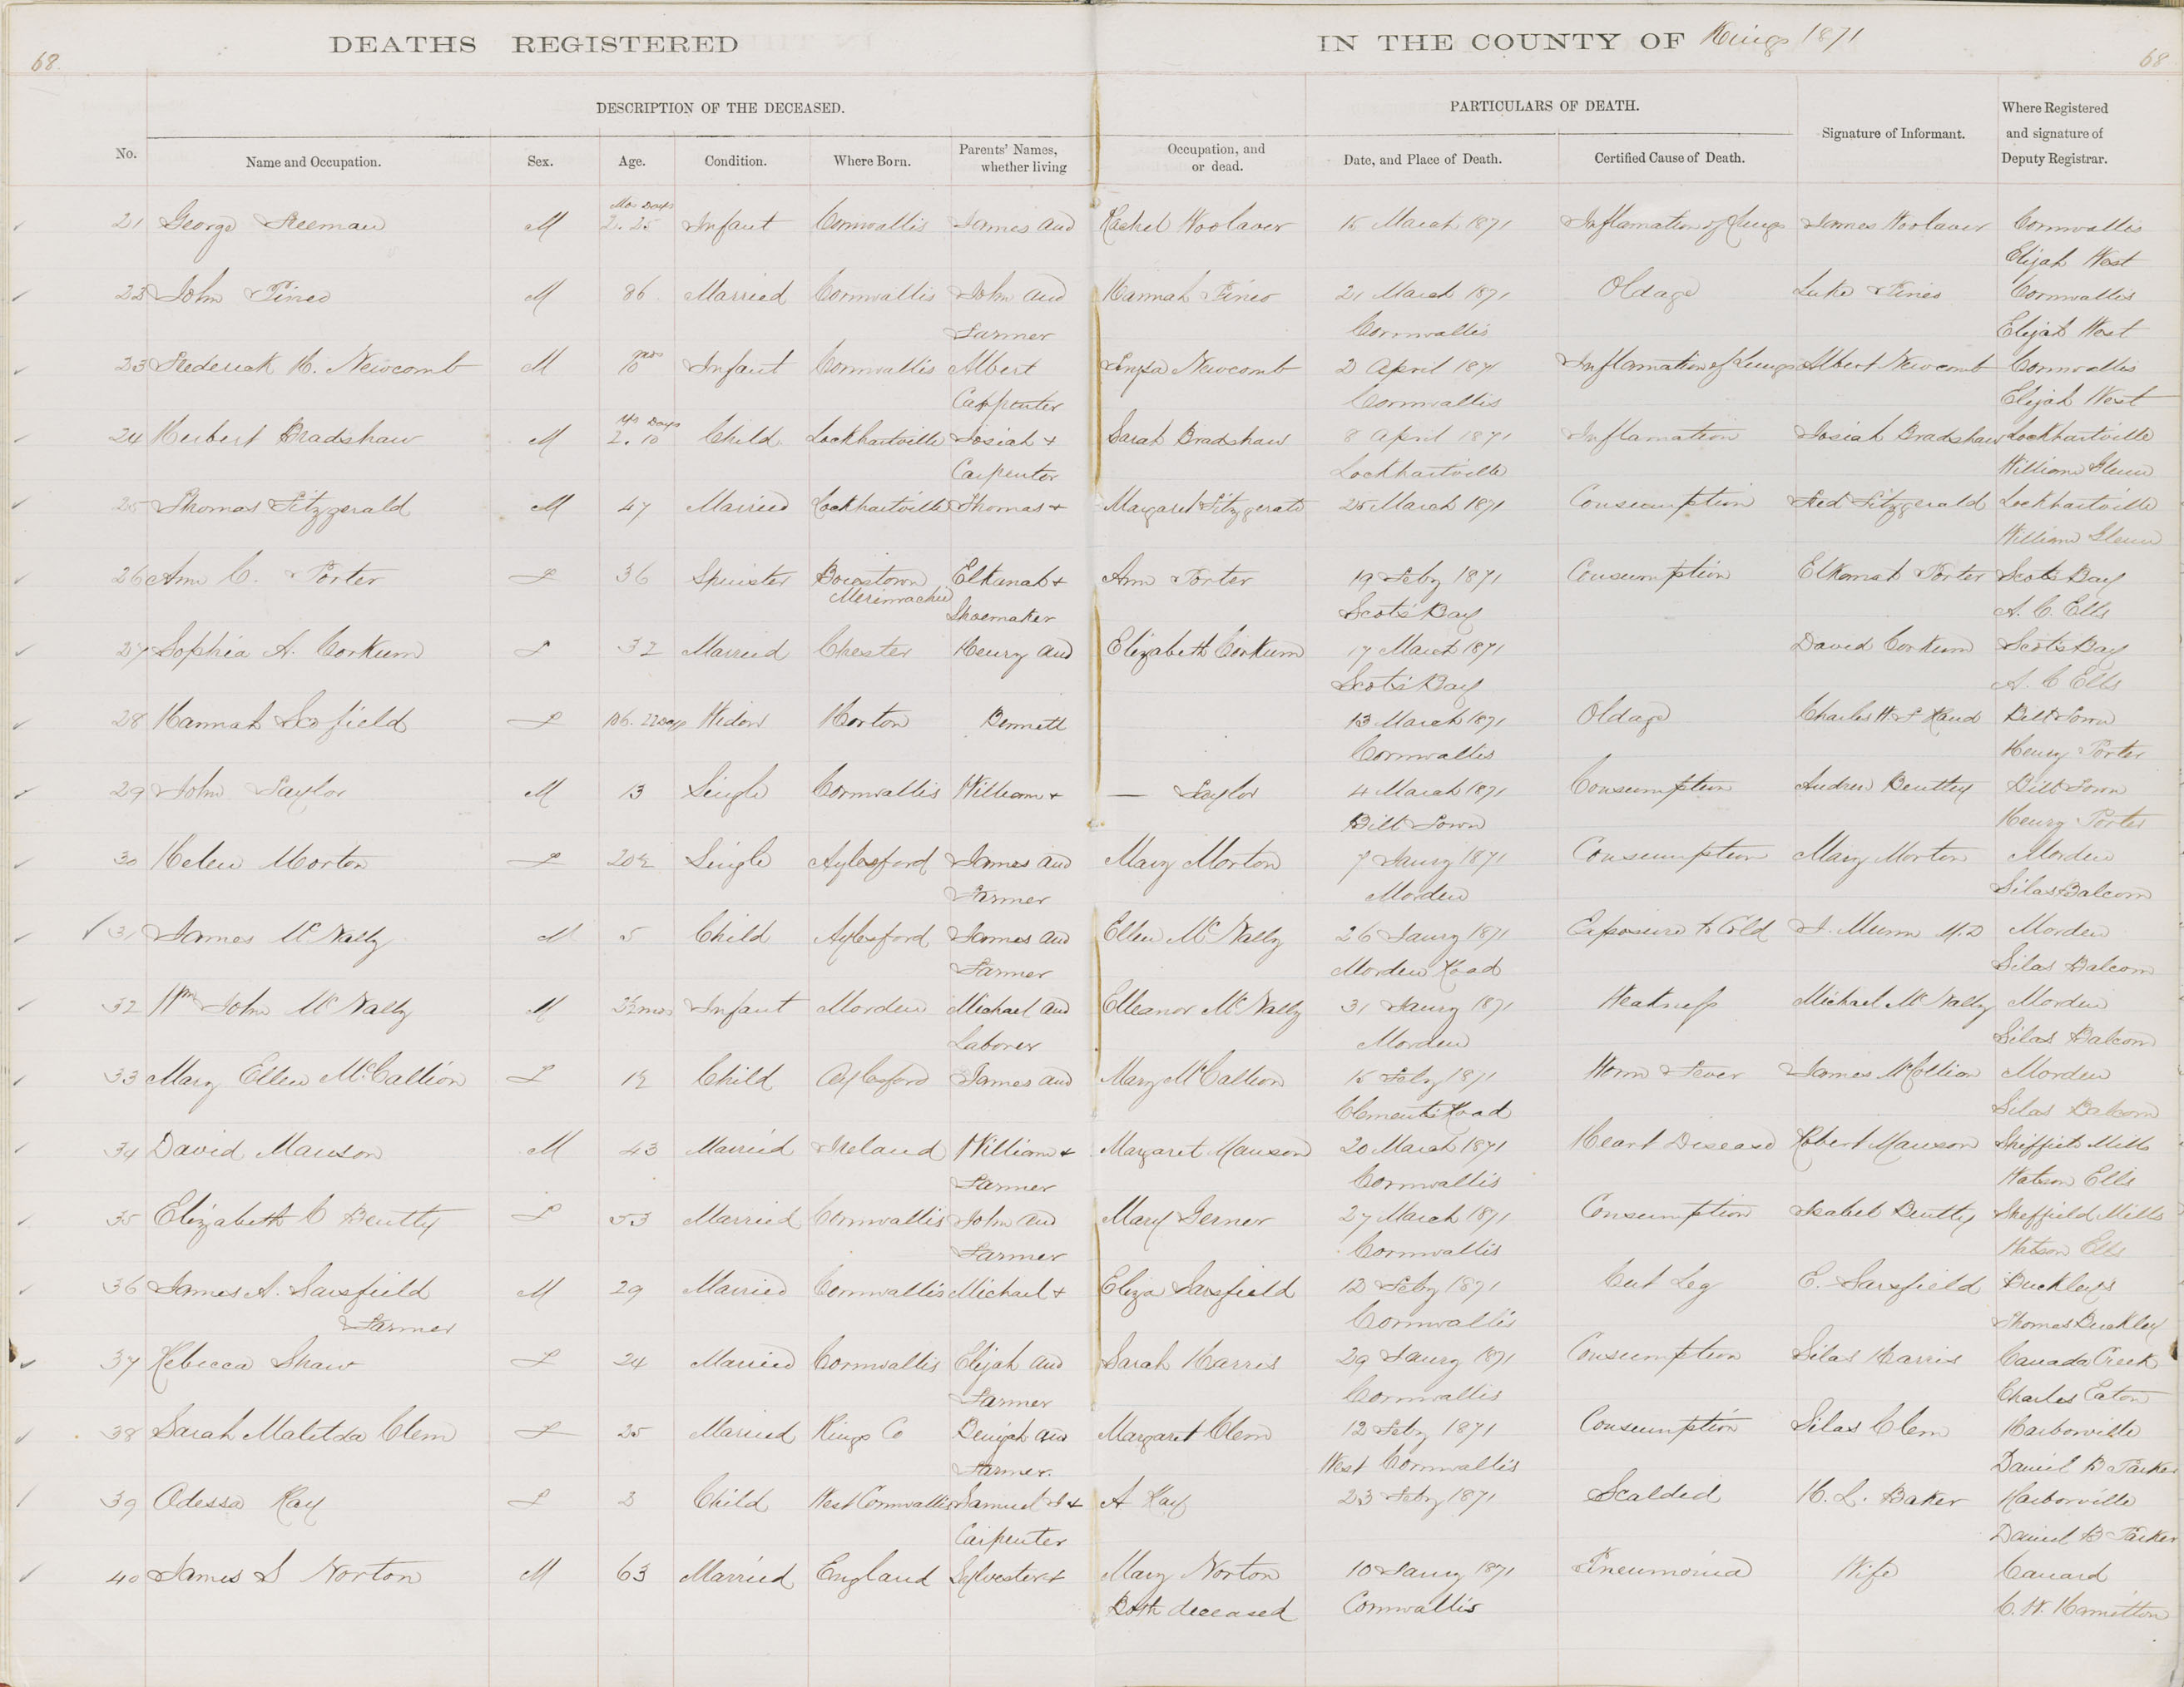 DEATHS REGISTERED IN THE COUNTY OF Kings 1871
68 68
DESCRIPTION OF THE DECEASED. PARTICULARS OF DEATH. Where Registered
and signature of
Deputy Registrar.
No. Name and Occupation. Sex. Age. Condition. Where Born. Parents' Names, whether living Occupation, and or dead. Date, and Place of Death. Certified Cause of Death. Signature of Informant.
Mos Days
21 George Freeman M 2. 25 Infant Cornwallis James and Rachel Woolaver 15 March 1871 Inflamation of Lungs James Woolaver Cornwallis
Elijah West
23 John Pineo M 86 Married Cornwallis John and Hannah Pineo 21 March 1871 Oldage Luke Pineo Cornwallis
Farmer Cornwallis Elijah West
23 Frederick H. Newcomb M 10 mos Infant Cornwallis Albert Newcomb 2 April 1871 Inflamation of Lungs Albert Newcomb Cornwallis
Carpenter Cornwallis Elijah West
Ys Days
24 Herbert Bradshaw M 2. 10 Child Lockhartville Josiah + Sarah Bradshaw 8 April 1871 Inflamation Josiah Bradshaw Lockhartville
Carpenter Lockhartville William Glenn
25 Thomas Fitzgerald M 47 Married Lockhartville Thomas + Margaret Fitzgerald 25 March 1871 Consumption Fred Fitzgerald Lockhartville
William Glenn
26 Ann C. Porter F 36 Spinster Boiestown Elkanah + Ann Porter 19 Feby 1871 Consumption Elkanah Porter Scots Bay
Merimachid Shoemaker Scots Bay A. C. Ells
27 Sophia A. Corkum F 32 Married Chester Henry and Elizabeth Corkum 17 March 1871 David Corkum Scots Bay
Scots Bay A. C Ells
28 Hannah Scofield F 106. 22 Days Widow Horton Bennett 13 March 1871 Oldage Charles Rand Bill Town
Cornwallis Henry Porter
29 John Taylor M 13 Single Cornwallis William + — Taylor 4 March 1871 Consumption Andrew Bentley Bill Town
Bill Town Henry Porter
30 Helen Morton F 20½ Single Aylesford James and Mary Morton 7 Jany 1871 Consumption Mary Morton Morden
Farmer Morden Silas Balcom
31 James McNally M 5 Child Aylesford James and Ellen McNally 26 Jany 1871 Exposure to Cold Munn M.D Morden
Farmer Morden Road Silas Balcom
32 Wm John McNally M 2½ mos Infant Morden Michael and Elleanor McNally 31 Jany 1871 Weakness Michael McNally Morden
Laborer Morden Silas Balcom
33 Mary Ellen McCallion F 1½ Child Aylesford James and Mary McCallion 15 Feby 1871 Worm Fever James McCollion Morden
Clements Road Silas Balcom
34 David Manson M 43 Married Ireland William + Margaret Manson 20 March 1871 Heart Disease Robert Manson Sheffield Mills
Farmer Cornwallis Watson Ells
35 Elizabeth C Bentley F 53 Married Cornwallis John and Mary Gerner 27 March 1871 Consumption Isabel Bentley Sheffield Mills
Farmer Cornwallis Watson Ells
36 James A. Sarsfield M 29 Married Cornwallis Michael + Eliza Sarsfield 12 Feby 1871 Cut Leg E. Sarsfield Buckleys
Farmer Cornwallis Thomas Buckley
37 Rebecca Shaw F 24 Married Cornwallis Elijah and Sarah Harris 29 Jany 1871 Consumption Silas Harris Canada Creek
Farmer Cornwallis Charles Eaton
38 Sarah Matilda Clem F 25 Married Kings Co Benijah and Margaret Clem 12 Feby 1871 Consumption Silas Clem Harborville
Farmer. West Cornwallis Daniel B Parker
39 Odessa Ray F 2 Child West Cornwallis Samuel + A Ray 23 Feby 1871 Scalded H. L. Baker Harborville
Carpenter Daniel B Parker
40 James S Norton M 63 Married England Sylvester + Mary Norton 10 Jany 1871 Pneumonia Wife Canard
Both deceased Cornwallis C. W. Hamilton